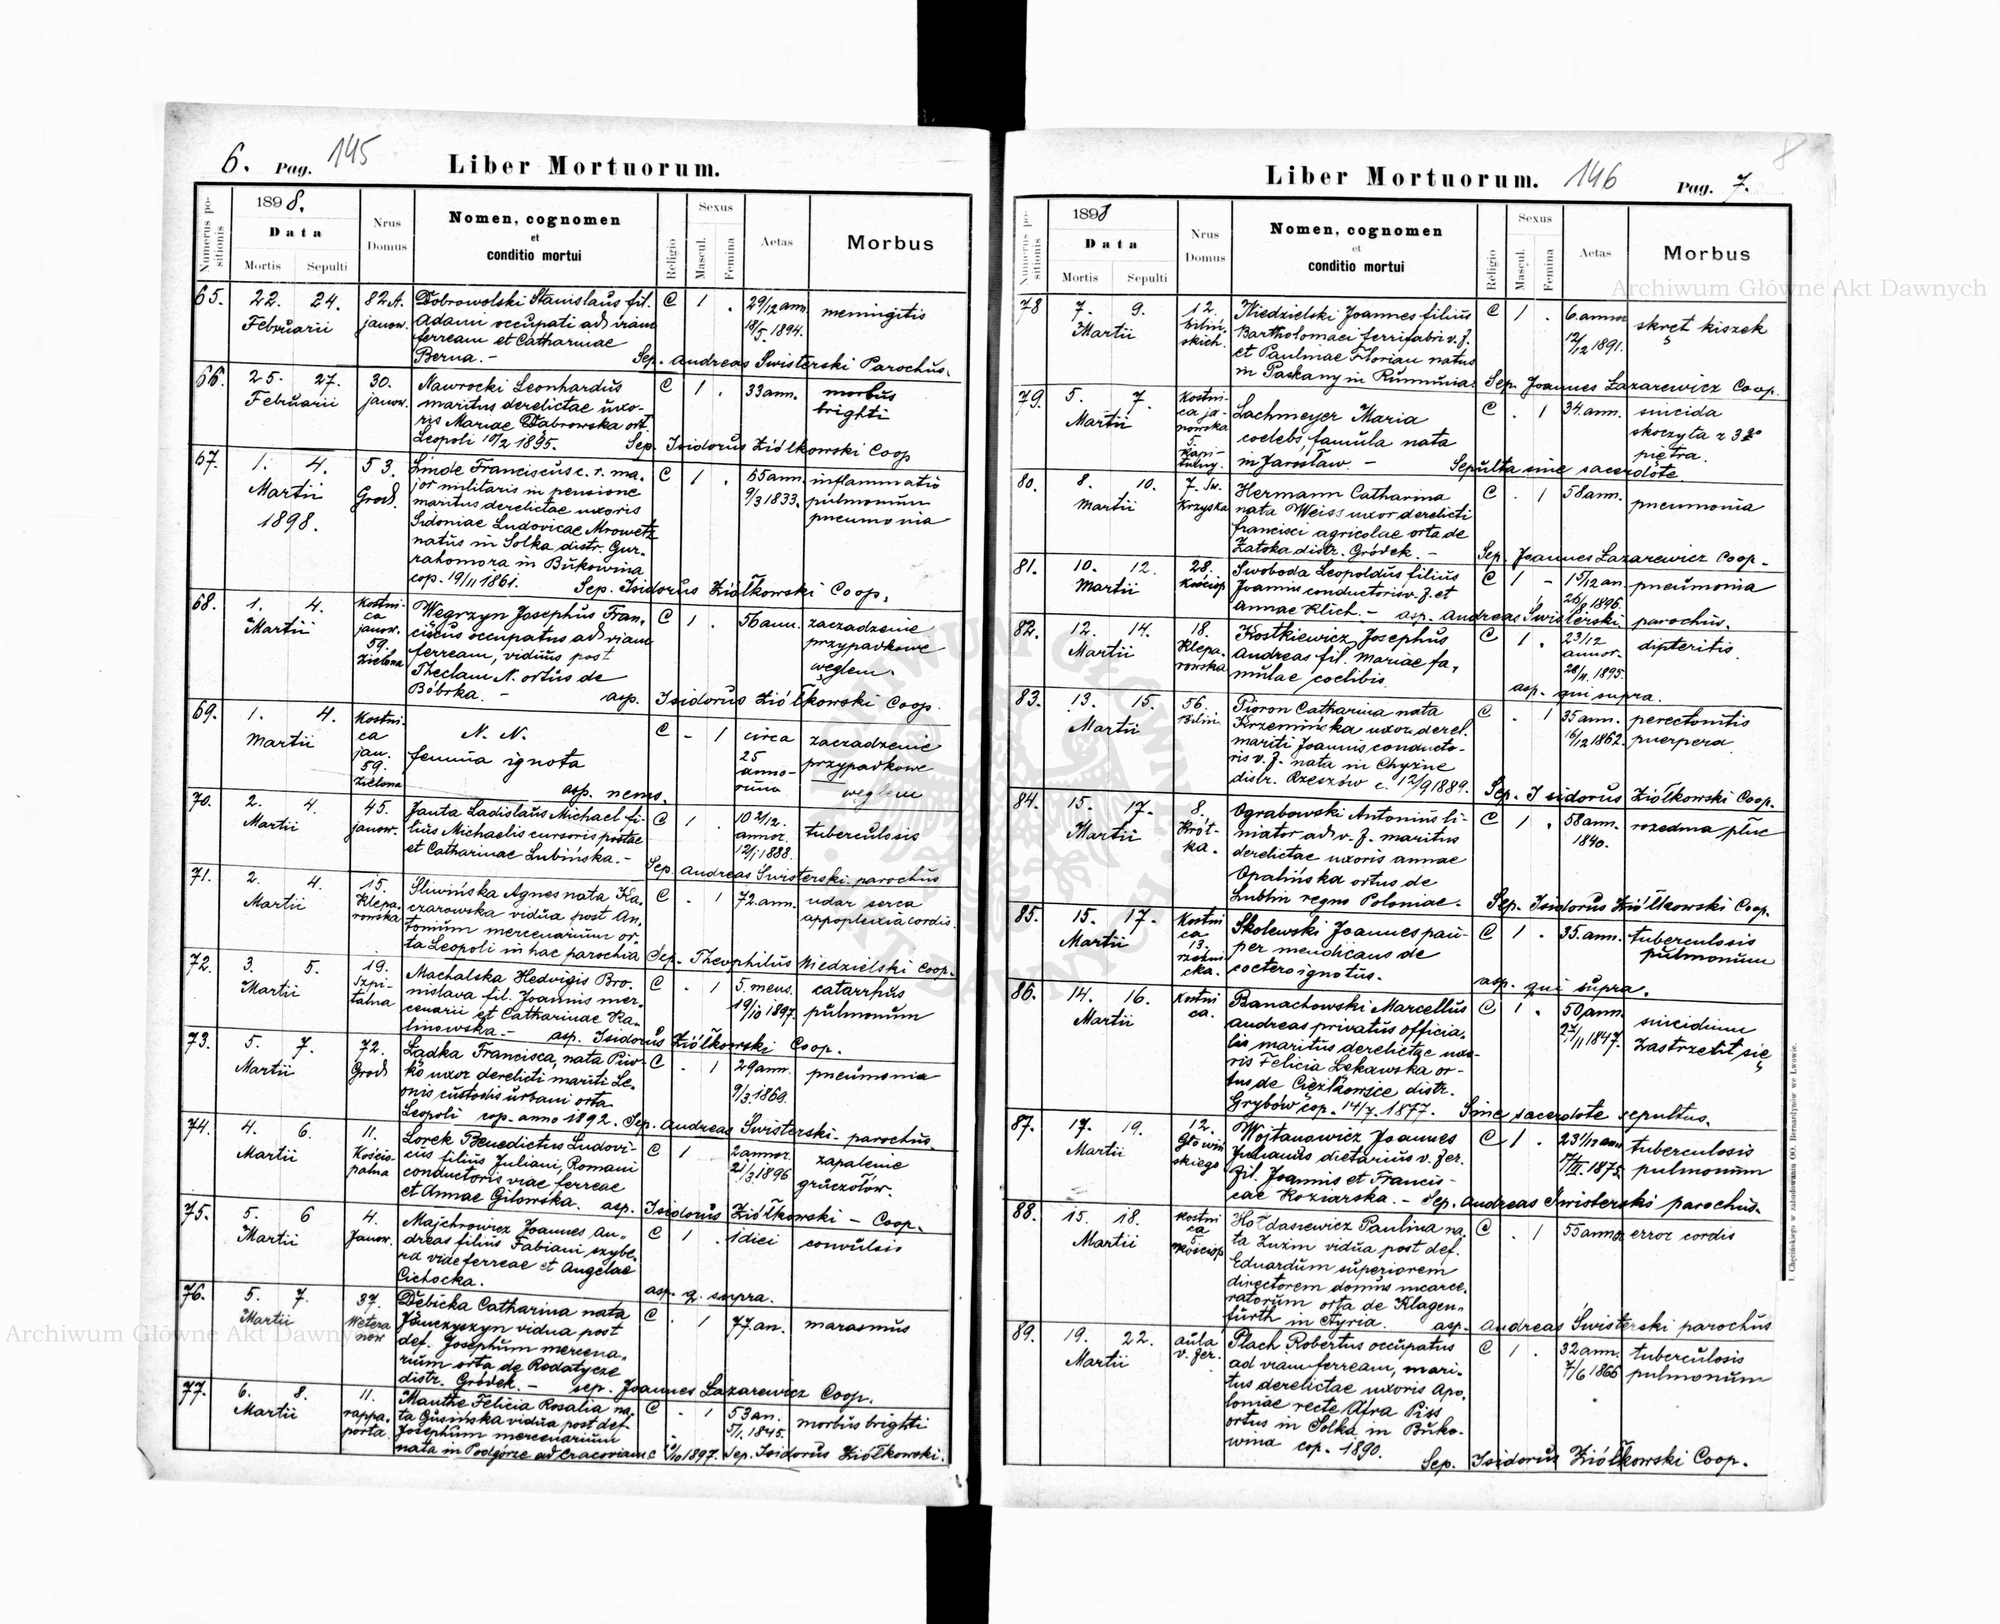 6. Pag. 145
Liber Mortuorum.
Numerus positionis
1898.
Data
Mortis Sepulti
Nrus Domus
Nomen, cognomen
et
conditio mortui
Religio
Sexus
Mascul. Femina
Aetas
Morbus
65. 22. 24. Februarii 82A. janow.
Dobrowolski Stanislaus fil.
Adami occupati ad viam
ferream et Catharinae
Berna. –
C 1 . 2 9/12 ann. 18/5. 1894. meningitis
Sep. Andreas Swisterski Parochus.
66. 25. 27. Februarii 30. janow.
Nawrocki Leonhardus
maritus derelictae uxo-
ris Mariae Dabrowska ort.
Leopoli 10/2 1895.
C 1 . 33 ann. morbus brighti
Sep. Isidorus Ziółkowski Coop
67. 1. 4. Martii 1898. 53. Grod.
Linde Franciscus c. r. ma-
jor militaris in pensione
maritus derelictae uxoris
Sidoniae Ludovicae Mrowetz
natus in Solka distr. Gur-
rahomora in Bukowina
cop. 19/11 1861.
C 1 . 65 ann. 9/3 1833. inflammatio
pulmonum
pneumonia
Sep. Isidorus Ziółkowski Coop.
68. 1. 4. Martii Kostni-
ca
janow.
59.
Zielona
Węgrzyn Josephus Fran-
ciscus occupatus ad viam
ferream, viduus post
Theclam N. ortus de
Bóbrka. –
C 1 . 56 ann. zaczadzenie
przypadkowe
węglem.
asp. Isidorus Ziółkowski Coop.
69. 1. 4. Martii Kostni-
ca
jan.
59.
Zielona
N. N.
femina ignota
C - 1 circa
25
anno-
rum
zaczadzenie
przypadkowe
weglem
asp. nemo.
70. 2. 4. Martii 45. janow.
Janta Ladislaus Michael fi-
lius Michaelis cursoris postae
et Catharinae Lubińska. –
C 1 . 10 2/12. annor. 12/1. 1888. tuberculosis
Sep. Andreas Świsterski parochus
71. 2. 4. Martii 15. Klepa-
rowska
Śliwińska Agnes nata Ka-
czarowska vidua post An-
tonium mercenarium or-
ta Leopoli in hac parochia
C . 1 72. ann. udar serca
appoplexia cordis.
Sep. Theophilus Niedzielski Coop.
72. 3. 5. Martii 19. Szpi-
talna
Machalska Hedvigis Bro-
nislava fil. Joannis mer-
cenarii et Catharinae Ka-
linowska. –
C . 1 5. mens. 19/10 1897. catarrhus
pulmonum
asp. Isidorus Ziółkowski Coop.
73. 5. 7. Martii 72. Grod
Ladka Francisca, nata Piw-
ko uxor derelicti mariti Le-
onis custodis urbani orta
Leopoli cop. anno 1892.
C . 1 29 ann. 9/3. 1869. pneumonia
Sep. Andreas Swisterski parochus.
74. 4. 6. Martii 11. Koscio-
palna
Lorek Benedictus Ludovi-
cus filius Juliani, Romani
conductoris viae ferreae
et Annae Gilowska.
C 1 2 annor. 21/3. 1896 zapalenie
gruczołów.
asp. Isidorus Ziółkowski – Coop.
75. 5. 6 Martii 4. Janow.
Majchrowicz Joannes An-
dreas filius Fabiani szybe-
ra viae ferreae et Angelae
Cichocka.
C 1 . 1 diei convulsis
asp. q. supra.
76. 5. 7. Martii 37. Wetera
now
Dębicka Catharina nata
Janczyszyn vidua post
def. Josephum mercena-
rium orta de Rodatycze
distr. Gródek. –
C . 1 77. an. marasmus
sep. Joannes Lazarewicz Coop.
77. 6. 8. Martii 11. rappa-
porta.
Manthe Felicia Rosalia na-
ta Gusińska vidua post def
Josephum mercenarium
nata in Podgórze ad Cracoviam
C . 1 53 an. 5/1. 1845. morbus brighti
1897. Sep. Isidorus Ziółkowski.
Liber Mortuorum. 146 Pag. 7.
8
Numerus positionis
1898
Data
Mortis Sepulti
Nrus Domus
Nomen, cognomen
et
conditio mortui
Religio
Sexus
Mascul. Femina
Aetas
Morbus
78 7. 9. Martii 12. biliń-
skich.
Niedzielski Joannes filius
Bartholomaei ferrifabri v. f.
et Paulinae Florian natus
in Paskany in Rumunia.
C 1 . 6. annor 12/12 1891. skręt kiszek
Sep. Joannes Lazarewicz Coop.
79. 5. 7. Martii Kostni-
ca ja-
nowska
5.
Kapi-
tulny.
Lachmeyer Maria
coelebs, famula nata
in Jarosław. –
C . 1 34. ann. suicida
skoczyła z 3go
piętra.
Sepulta sine sacerdote.
80. 8. 10. Martii 7. Sw.
Krzyska
Hermann Catharina
nata Weiss uxor derelicti
francisci agricolae orta de
Zatoka distr. Gródek. –
C . 1 58 ann. pneumonia
Sep. Joannes Lazarewicz Coop. –
81. 10. 12. Martii 28. Kościop
Swoboda Leopoldus filius
Joannis conductoris v. f. et
Annae Klich. –
C 1 – 1 5/12 an. 26/9 1896. pneumonia
asp. Andreas Swisterski parochus.
82. 12. 14. Martii 18. Klepa-
rowska
Kostkiewicz Josephus
Andreas fil. Mariae fa-
mulae coelibis.
C 1 . 2 3/12 annor. 28/11. 1895. dipteritis.
asp. qui supra.
83. 13. 15. Martii 56. Bilin.
Pioron Catharina nata
Krzemińska uxor derel.
mariti Joannis conducto-
ris v. f. nata in Chyżne
distr. Rzeszów c. 12/9 1889.
C . 1 35 ann. 16/12 1862. perectonitis
puerpera.
Sep. Isidorus Ziółkowski Coop.
84. 15. 17. Martii 8. Krót-
ka.
Ograbowski Antonius li-
miator ad v. f. maritus
derelictae uxoris annae
Opalińska ortus de
Lublin regno Poloniae.
C 1 . 58 ann. 1840. rozedma płuc
Sep. Isidorus Ziółkowski Coop.
85. 15. 17. Martii Kostni
ca
13.
rzezni
cka.
Skolewski Joannes pau-
per mendicans de
coetero ignotus.
C 1 . 35. ann. tuberculosis
pulmonum
asp. qui supra.
86. 14. 16. Martii Kostni
ca.
Banachowski Marcellus
Andreas privatus officia-
lis maritus derelictae uxo-
ris Felicia Lekawska or-
tus de Ciężkowice distr.
Grybów cop. 14/7. 1877.
C 1 . 50 ann. 1847. suicidium
zastrzelił się
Sine sacerdote sepultus.
87. 17. 19. Martii 12. Głowiń
skiego
Wojtanowicz Joannes
Julianus dietarius v. fer.
fil. Joannis et Francis-
cae Koziarska. –
C 1 . 23 1/12 ann. 1875. tuberculosis
pulmonum
Sep. Andreas Swisterski parochus.
88. 15. 18. Martii Kostni
ca
5
Kościop
Hołdasiewicz Paulina na-
ta Zuzim vidua post def.
Eduardum superiorem
directorem domus incarce-
ratorum orta de Klagen-
fürth in Styria.
C . 1 55 annor error cordis
asp. Andreas Swisterski parochus
89. 19. 22. Martii aula
v. fer.
Plach Robertus occupatus
ad viam ferream, mari-
tus derelictae uxoris Apo-
loniae recte Afra Piss
ortus in Solka in Buko-
wina cop. 1890.
C 1 . 32 ann. 7/6 1866 tuberculosis
pulmonum
Sep. Isidorus Ziółkowski Coop.
Archiwum Główne Akt Dawnych
Archiwum Główne Akt Dawnych